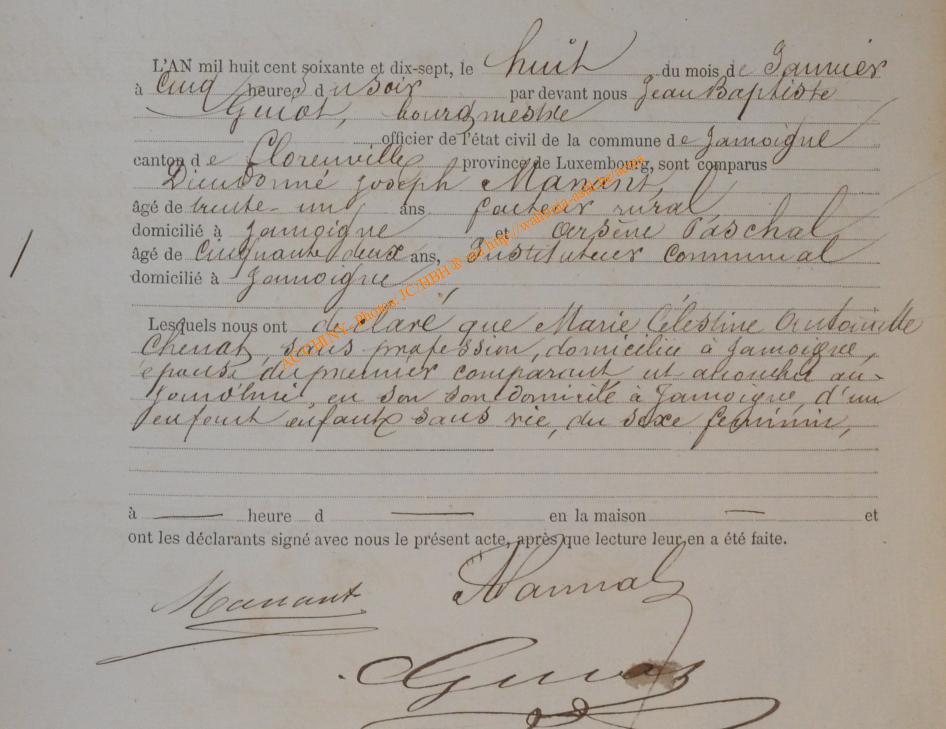 L'AN mil huit cent soixante et dix-sept, le huit du mois de Janvier
à Cinq heures du soir par devant nous Jean Baptiste
Guiot, bourgmestre
officier de l'état civil de la commune de Jamoigne
canton de Florenville province de Luxembourg, sont comparus
Dieudonné joseph Manant,
âgé de trente-un ans facteur rural
domicilié à Jamoigne et Arsène Paschal
âgé de Cinquante deux ans, Instituteur communal
domicilié à Jamoigne
Lesquels nous ont déclaré que Marie Célestine Antoinette
sans profession, domiciliée à Jamoigne,
épouse du premier comparant est accouchée au-
en son son domicile à Jamoigne, d'un
enfant sans vie, du sexe féminin,
à heure d en la maison et
ont les déclarants signé avec nous le présent acte, après que lecture leur en a été faite.
Manant
Guiot